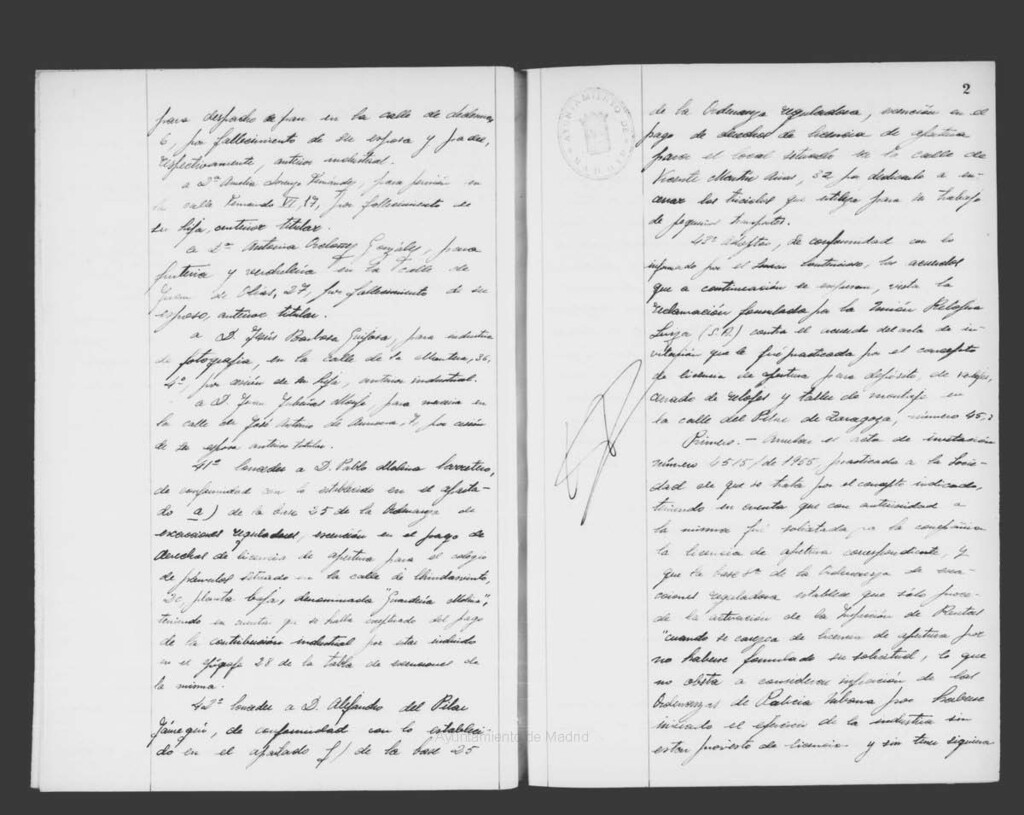 para despacho de pan en la calle de
6, por fallecimiento de su esposa y padre,
respectivamente, anterior industrial.
a Dª Amelia Lorenzo Fernández, para pensión en
la calle Fernando VI, 17, por fallecimiento de
su hija, anterior titular.
a Dª Antonia González, para
frutería y verdulería en la calle de
Juan de Olías, 27, por fallecimiento de su
esposo, anterior titular.
a D. Jesús Barbosa, para industria
de fotografía, en la calle de la Montera, 36,
4º, por cesión de su hija, anterior industrial.
a D. Juan para en
la calle de José Antonio de Armona, 7, por cesión
de su esposa anterior titular.
41º Conceder a D. Pablo Molina Carretero,
de conformidad con lo establecido en el aparta-
do a) de la base 25 de la Ordenanza de
exacciones reguladoras, exención en el pago de
derechos de licencia de apertura para el colegio
de párvulos situado en la calle de
20 planta baja, denominada "Guardería Molina",
teniendo en cuenta que se halla exceptuado del pago
de la contribución industrial por estar incluido
en el epígrafe 28 de la tabla de exenciones de
la misma.
42º Conceder a D. Alejandro del Pilar
de conformidad con lo estableci-
do en el apartado f) de la base 25
2
AYUNTAMIENTO DE MADRID
de la Ordenanza reguladora, exención en el
pago de derechos de licencia de apertura
para el local situado en la calle de
Vicente Martín Arias, 32 por dedicarlo a en-
cerrar los triciclos que utiliza para su trabajo
de pequeños transportes.
43º Adoptar, de conformidad con lo
informado por el Contencioso, los acuerdos
que a continuación se expresan, vista la
reclamación formulada por la Unión Relojera
Suiza (S.A.) contra el acuerdo del acta de in-
vitación que le fué practicada por el concepto
de licencia de apertura para depósito de relojes,
de relojes y taller de montaje en
la calle del Pilar de Zaragoza, número 45,
Primero.- Anular el acta de invitación
número 4515/ de 1955, practicada a la Socie-
dad de que se trata por el concepto indicado,
teniendo en cuenta que con anterioridad a
la misma fué solicitada por la compañía
la licencia de apertura correspondiente, y
que la base 8ª de la Ordenanza de exac-
ciones reguladora establece que sólo proce-
de la actuación de la Inspección de Rentas
"cuando se carezca de licencia de apertura por
no haberse formulado su solicitud, lo que
no obsta a considerar infracción de las
Ordenanzas de Policía Urbana por haberse
iniciado el ejercicio de la industria sin
estar provisto de licencia y sin tener siquiera
Ayuntamiento de Madrid